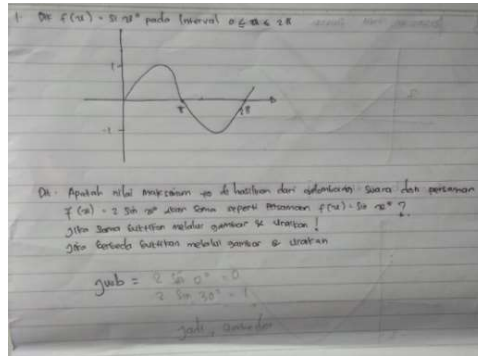 1. Dik f(x) = sin x° pada interval 0 ≤ x ≤ 2π
1
π
2π
-1
Dit. Apakah nilai maksimum yg di hasilkan dari gelombang suara dgn persamaan
f(x) = 2 sin x° akan sama seperti persamaan f(x) = sin x° ?
jika sama buktikan melalui gambar & uraikan !
jika berbeda buktikan melalui gambar & uraikan
jwb = 2 sin 0° = 0
2 sin 30° = 1
jadi,